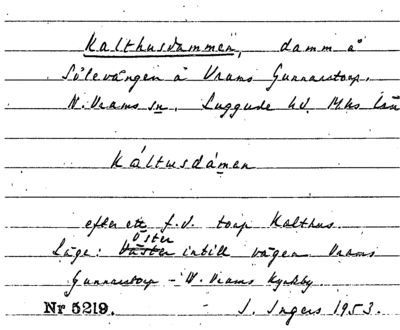 Kalthusdammen, damm å
Sölevången å Vrams Gunnarstorp.
N. Vrams sn. Luggude hd. Mhs län
Káltusdámen
efter ett f.d. torp Kalthus.
Öster
Läge: Väster intill vägen Vrams
Gunnarstorp - N. Vrams kyrkby.
Nr 5219. J. Ingers 1953.